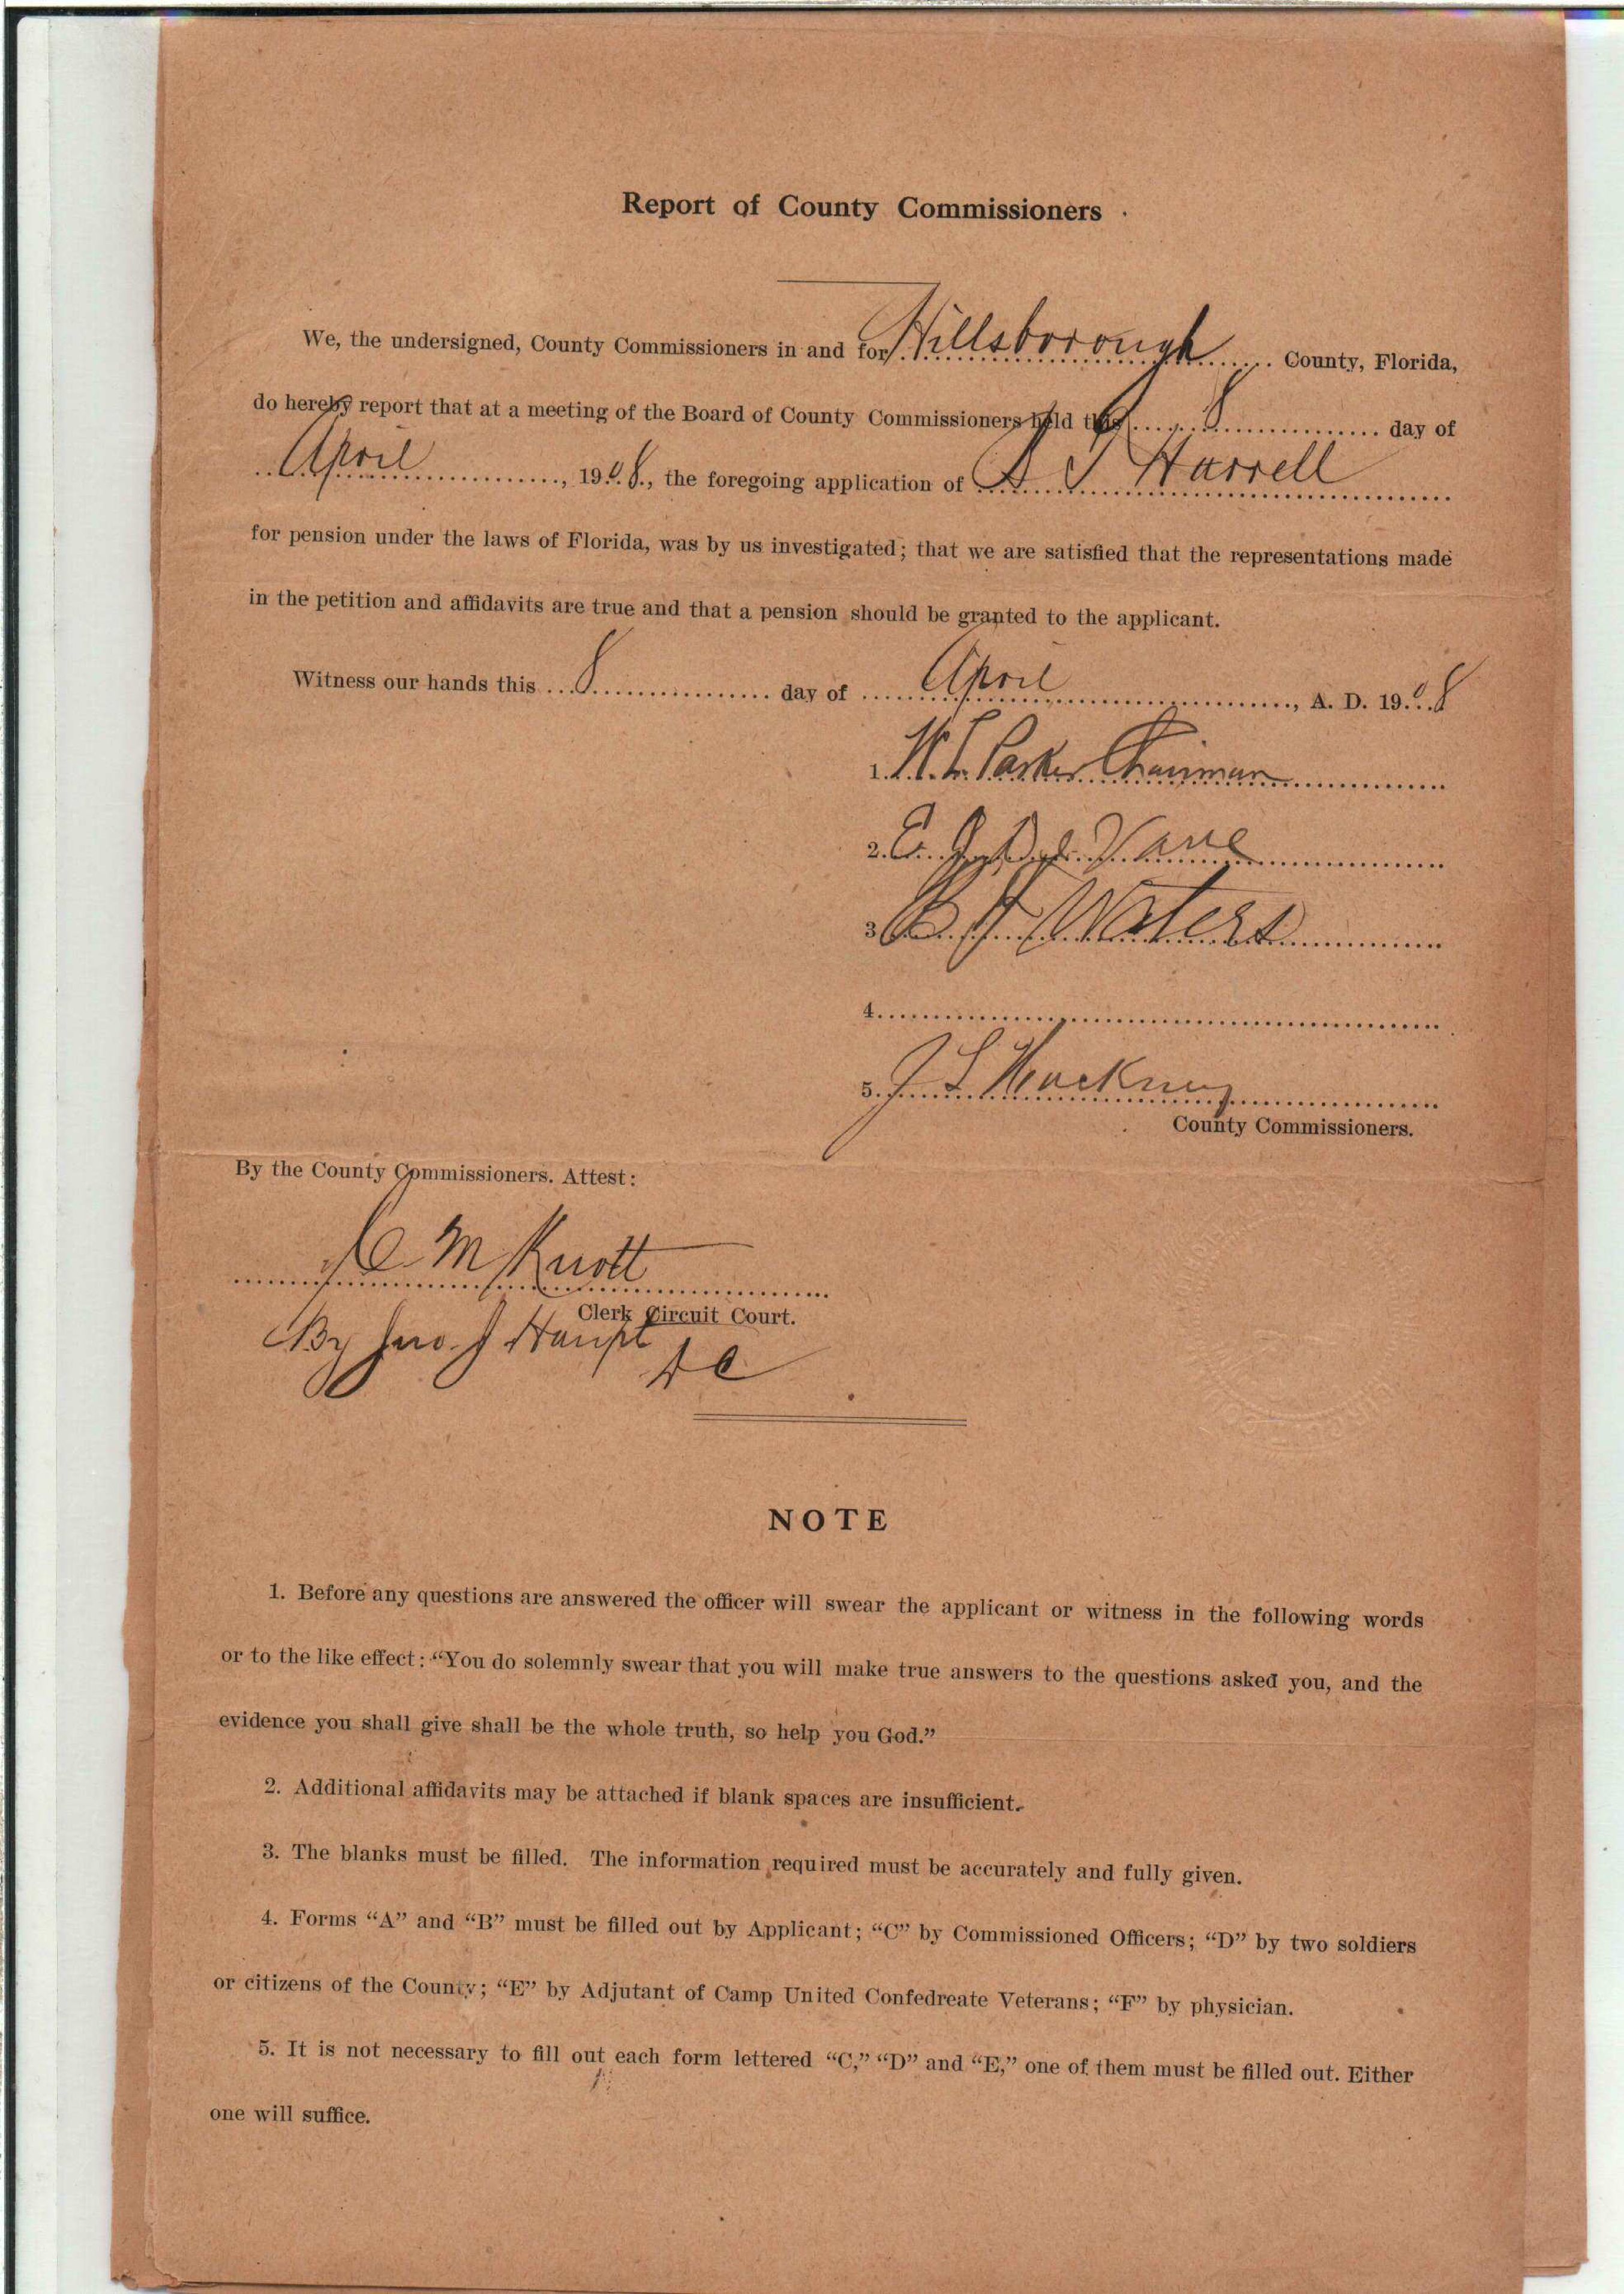 Report of County Commissioners
We, the undersigned, County Commissioners in and for Hillsborough County, Florida,
do hereby report that at a meeting of the Board of County Commissioners held this 8 day of
April, 1908, the foregoing application of Harrell
for pension under the laws of Florida, was by us investigated; that we are satisfied that the representations made
in the petition and affidavits are true and that a pension should be granted to the applicant.
Witness our hands this 8 day of April, A. D. 1908
1. W. L. Parker Chairman
2.
3. B H Waters
4.
5. J L Hackney
County Commissioners.
By the County Commissioners. Attest:
C M Knott
Clerk Circuit Court.
By Jno. J Haupt
DC
NOTE
1. Before any questions are answered the officer will swear the applicant or witness in the following words
or to the like effect: “You do solemnly swear that you will make true answers to the questions asked you, and the
evidence you shall give shall be the whole truth, so help you God.”
2. Additional affidavits may be attached if blank spaces are insufficient.
3. The blanks must be filled. The information required must be accurately and fully given.
4. Forms “A” and “B” must be filled out by Applicant; “C” by Commissioned Officers; “D” by two soldiers
or citizens of the County; “E” by Adjutant of Camp United Confedreate Veterans; “F” by physician.
5. It is not necessary to fill out each form lettered “C,” “D” and “E,” one of them must be filled out. Either
one will suffice.